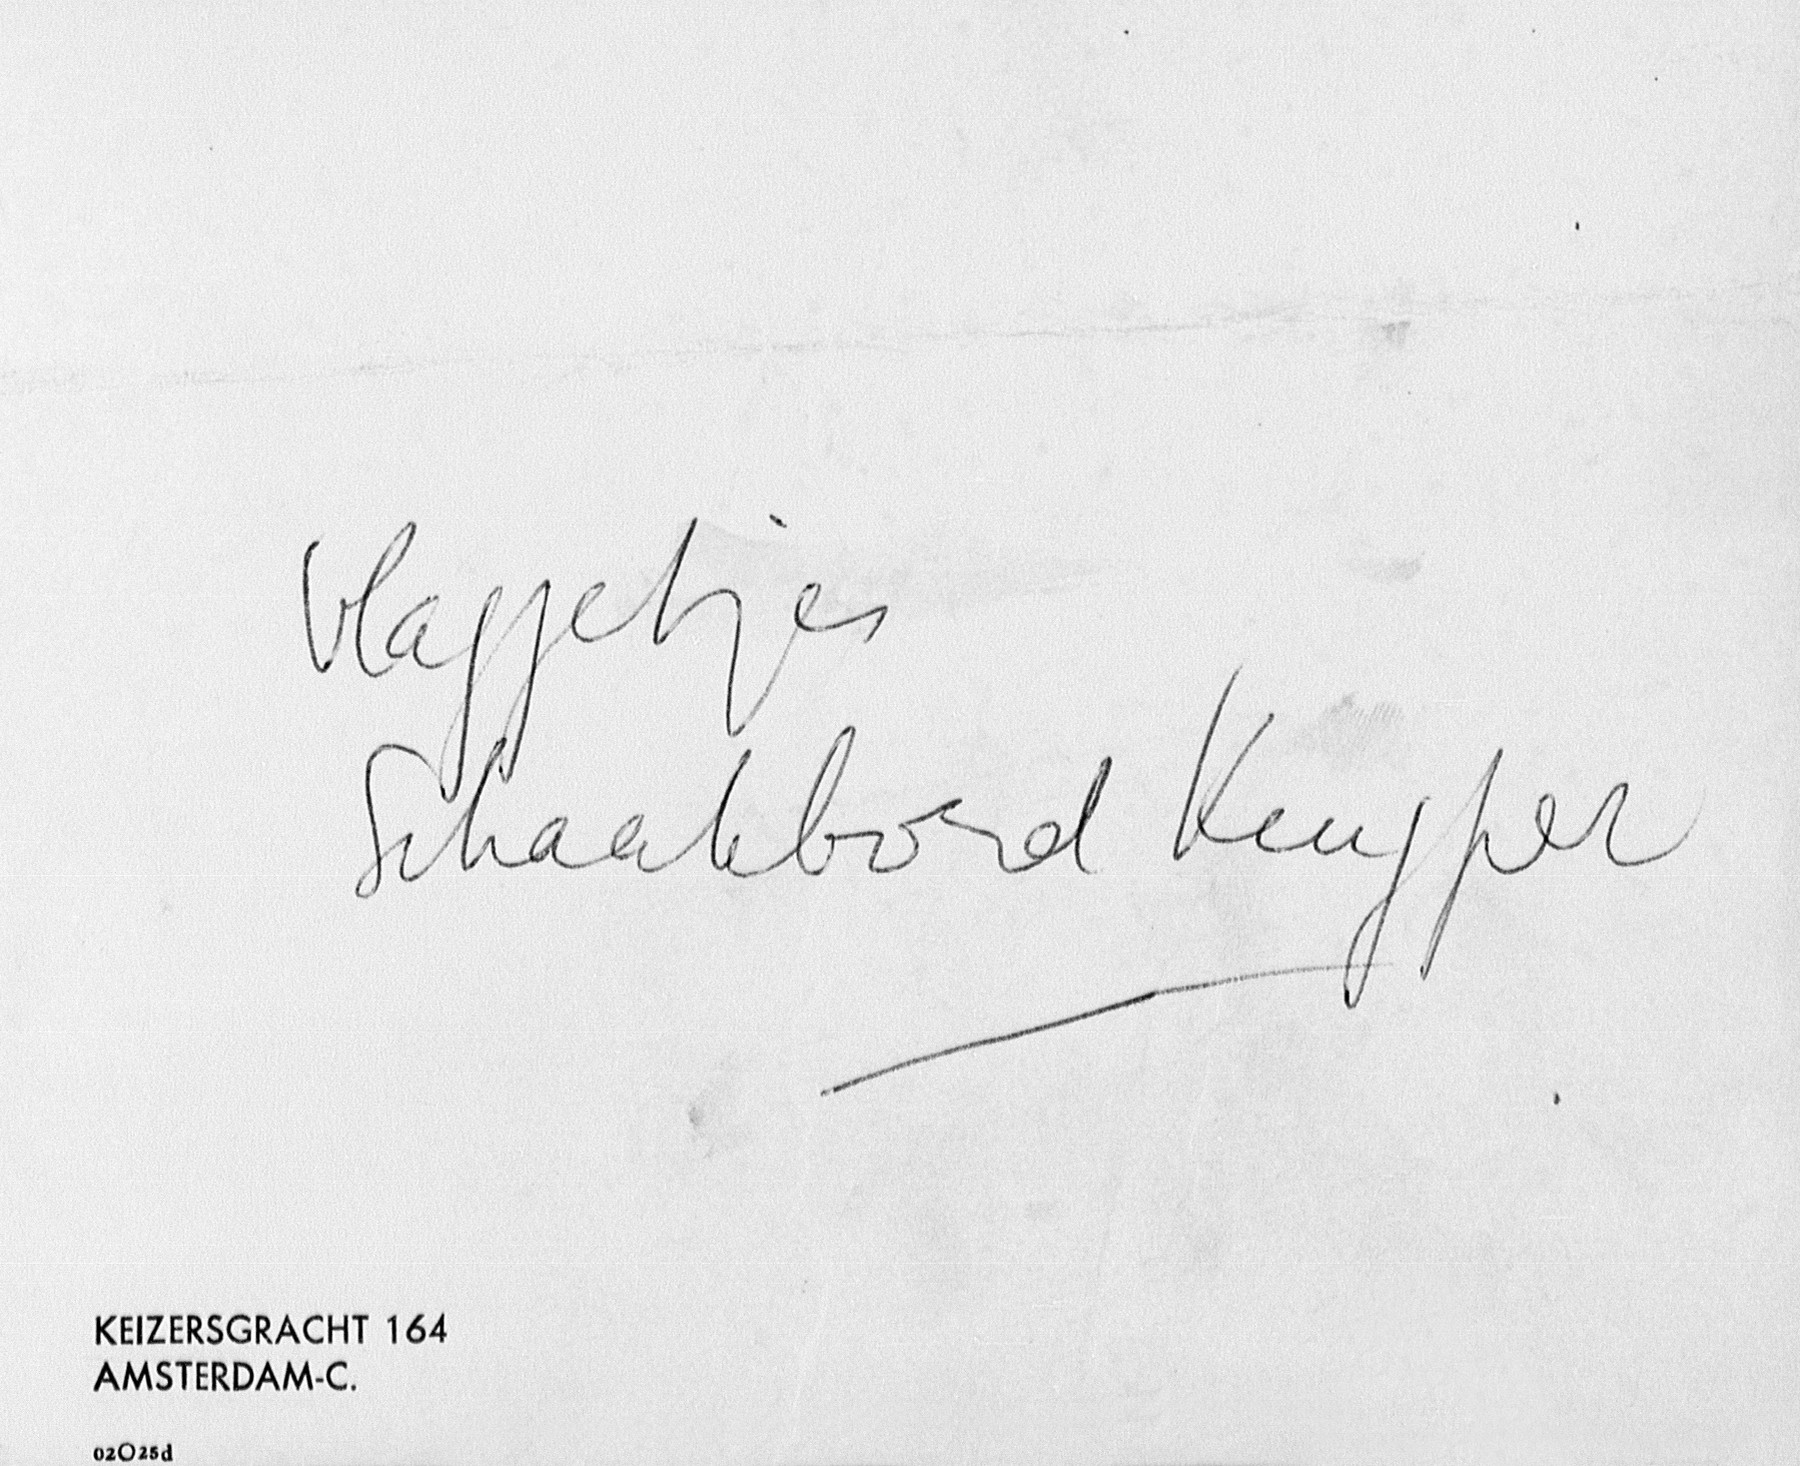 Vlaggetjes
Schaakbord Kuyper
KEIZERSGRACHT 164
AMSTERDAM-C.
02O25d